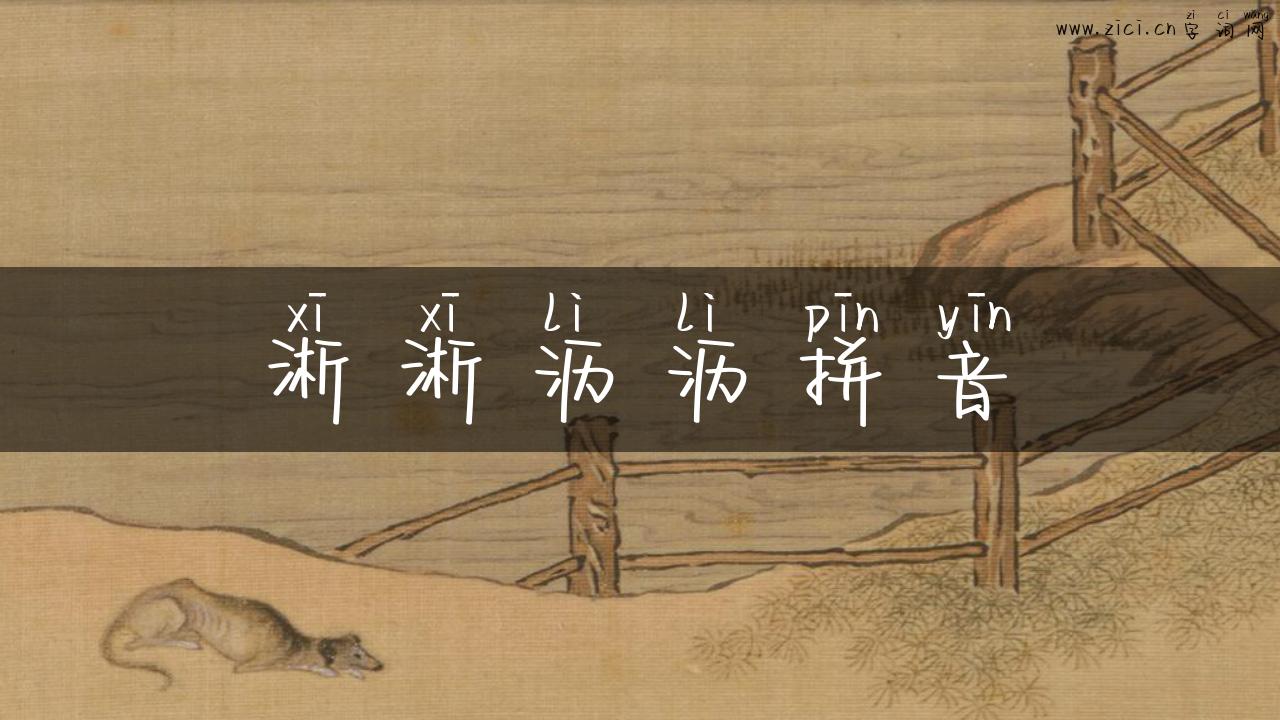 zì cí wǎng
www.zici.cn 字词网
xī xī lì lì pīn yīn
淅淅沥沥拼音